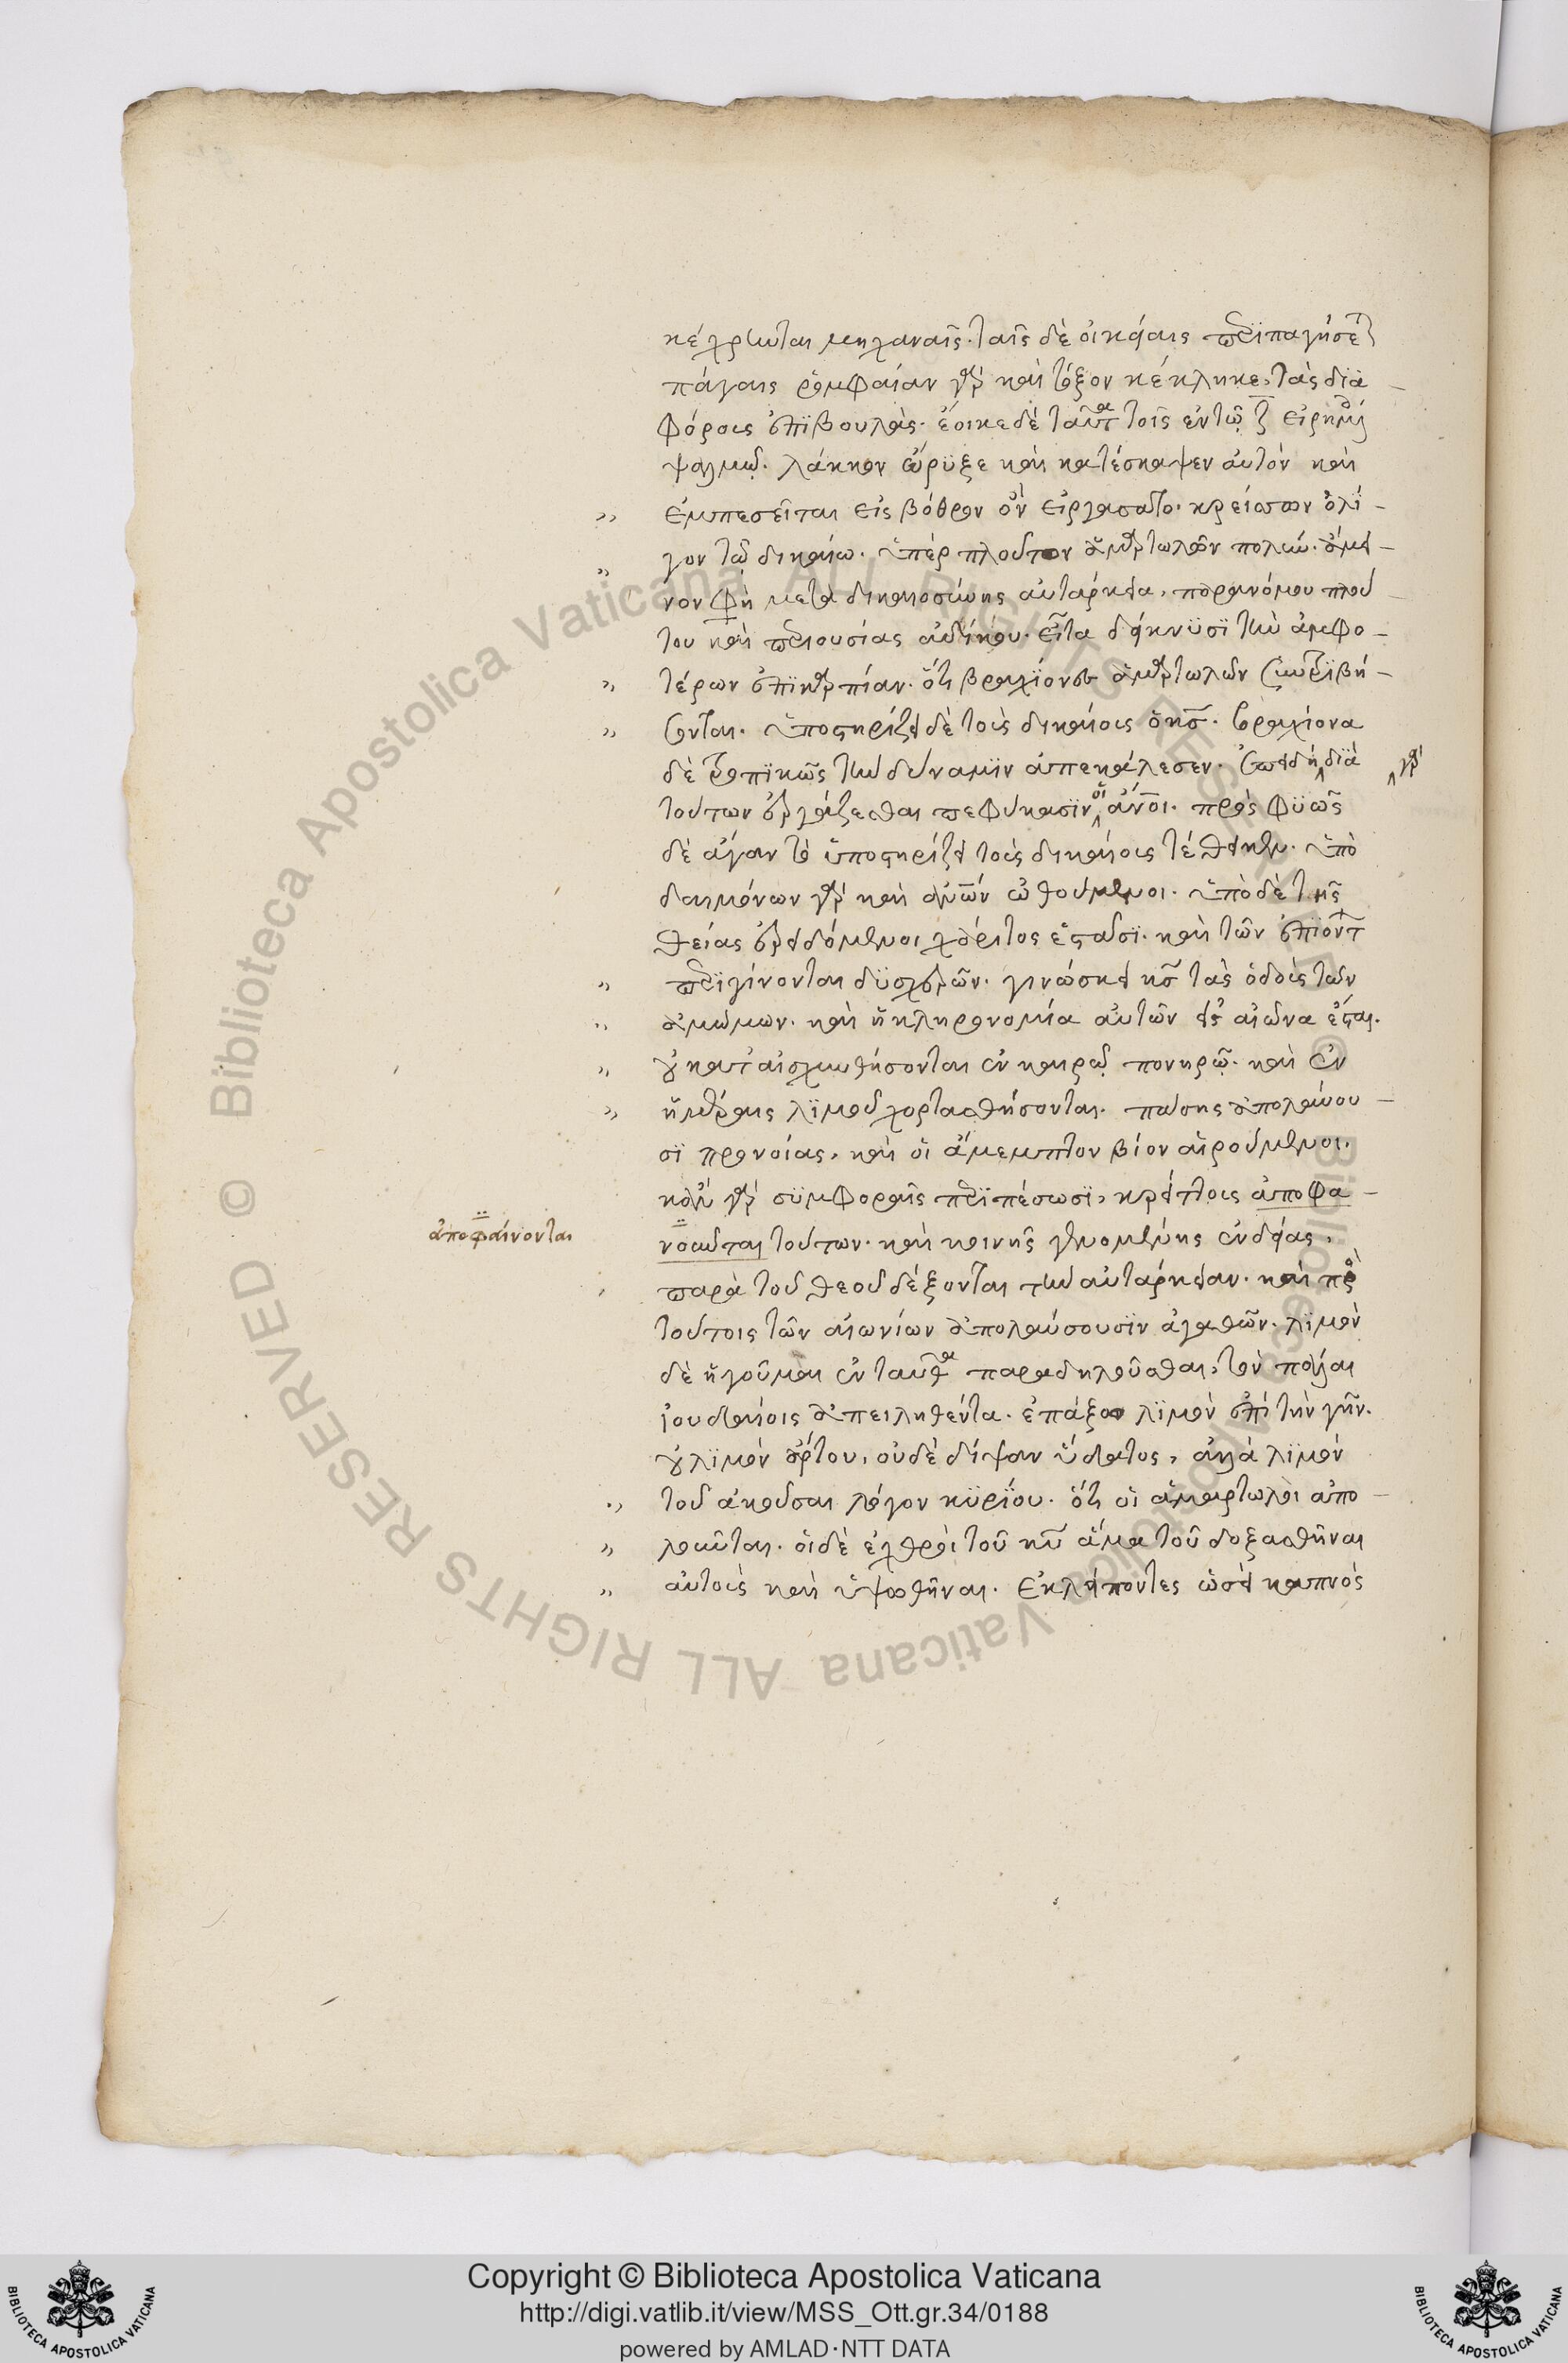 κέχρηνται μηχαναῖς. ταῖς δὲ οἰκείαις περιπαγήσεται
πάγαις ῥομφαίαν γὰρ καὶ τόξον κέκληκε, τὰς δια-
φόρους ἐπιβουλάς. ἔοικε δὲ ταῦτα τοῖς ἐν τῷ ζ εἰρημένοις
ψαλμῷ. λάκκον ὤρυξε καὶ κατέσκαψεν αὐτὸν καὶ
ἐμπεσεῖται εἰς βόθρον ὃν εἰργάσατο. κρεῖσσον ὀλί-
γον τῷ δικαίῳ. ὑπὲρ πλοῦτον ἁμαρτωλῶν πολύν. ἀμεί-
νον φη μετὰ δικαιοσύνης αὐτάρκεια, παρανόμου πλού-
του καὶ περιουσίας ἀδίκου. εἶτα δείκνυσι τὴν ἀμφο-
τέρων ἐπικαρπίαν. ὅτι βραχίονες ἁμαρτωλῶν συντριβή-
σονται. ὑποστηρίζει δὲ τοὺς δικαίους ὁ κς. βραχίονα
δὲ τροπικῶς τὴν δύναμιν ἀπεκάλεσεν. ἐπειδὴ διὰ
γὰρ
τούτων ἐργάζεσθαι πεφύκασιν οἱ ἄνοι. προσφυῶς
δὲ ἄγαν τὸ ὑποστηρίζει τοὺς δικαίους τέθεικεν. ὑπὸ
δαιμόνων γὰρ καὶ ἀνῶν ὠθούμενοι. ὑπὸ δὲ τῆς
θείας ἐρειδόμενοι χάριτος ἑστᾶσι. καὶ τῶν ἐπιόντων
περιγίνονται δυσχερῶν. γινώσκει κς τὰς ὁδοὺς τῶν
ἀμώμων. καὶ ἡ κληρονομία αὐτῶν εἰς αἰῶνα ἔσται.
οὐ καταισχυνθήσονται ἐν καιρῷ πονηρῷ. καὶ ἐν
ἡμέραις λιμοῦ χορτασθήσονται. πάσης ἀπολαύου-
σι προνοίας, καὶ οἱ ἄμεμπτον βίον αἱρούμενοι.
κἂν γὰρ συμφοραῖς περιπέσωσι, κρείττους ἀποφα-
ἀποφαίνονται
νοῦνται τούτων. καὶ κοινῆς γενομένης ἐνδείας,
παρὰ τοῦ θεοῦ δέξονται τὴν αὐτάρκειαν. καὶ πρὸς
τούτοις τῶν αἰωνίων ἀπολαύσουσιν ἀγαθῶν. λιμὸν
δὲ ἡγοῦμαι ἐνταῦθα παραδηλοῦσθαι, τὸν πάλαι
ἰουδαίοις ἀπειληθέντα. ἐπάξω λιμὸν ἐπὶ τὴν γῆν.
οὐ λιμὸν ἄρτου, οὐδὲ δίψαν ὕδατος, ἀλλὰ λιμὸν
τοῦ ἀκοῦσαι λόγον κυρίου. ὅτι οἱ ἁμαρτωλοὶ ἀπο-
λοῦνται. οἱ δὲ ἐχθροὶ τοῦ κυ ἅμα τοῦ δοξασθῆναι
αὐτοὺς καὶ ὑψωθῆναι. ἐκλείποντες ὡσεὶ καπνὸς
Copyright © Biblioteca Apostolica Vaticana
http://digi.vatlib.it/view/MSS_Ott.gr.34/0188
powered by AMLAD·NTT DATA
BIBLIOTECA APOSTOLICA VATICANA
BIBLIOTECA APOSTOLICA VATICANA
© Biblioteca Apostolica Vaticana ALL RIGHTS RESERVED © Biblioteca Apostolica Vaticana ALL RIGHTS RESERVED